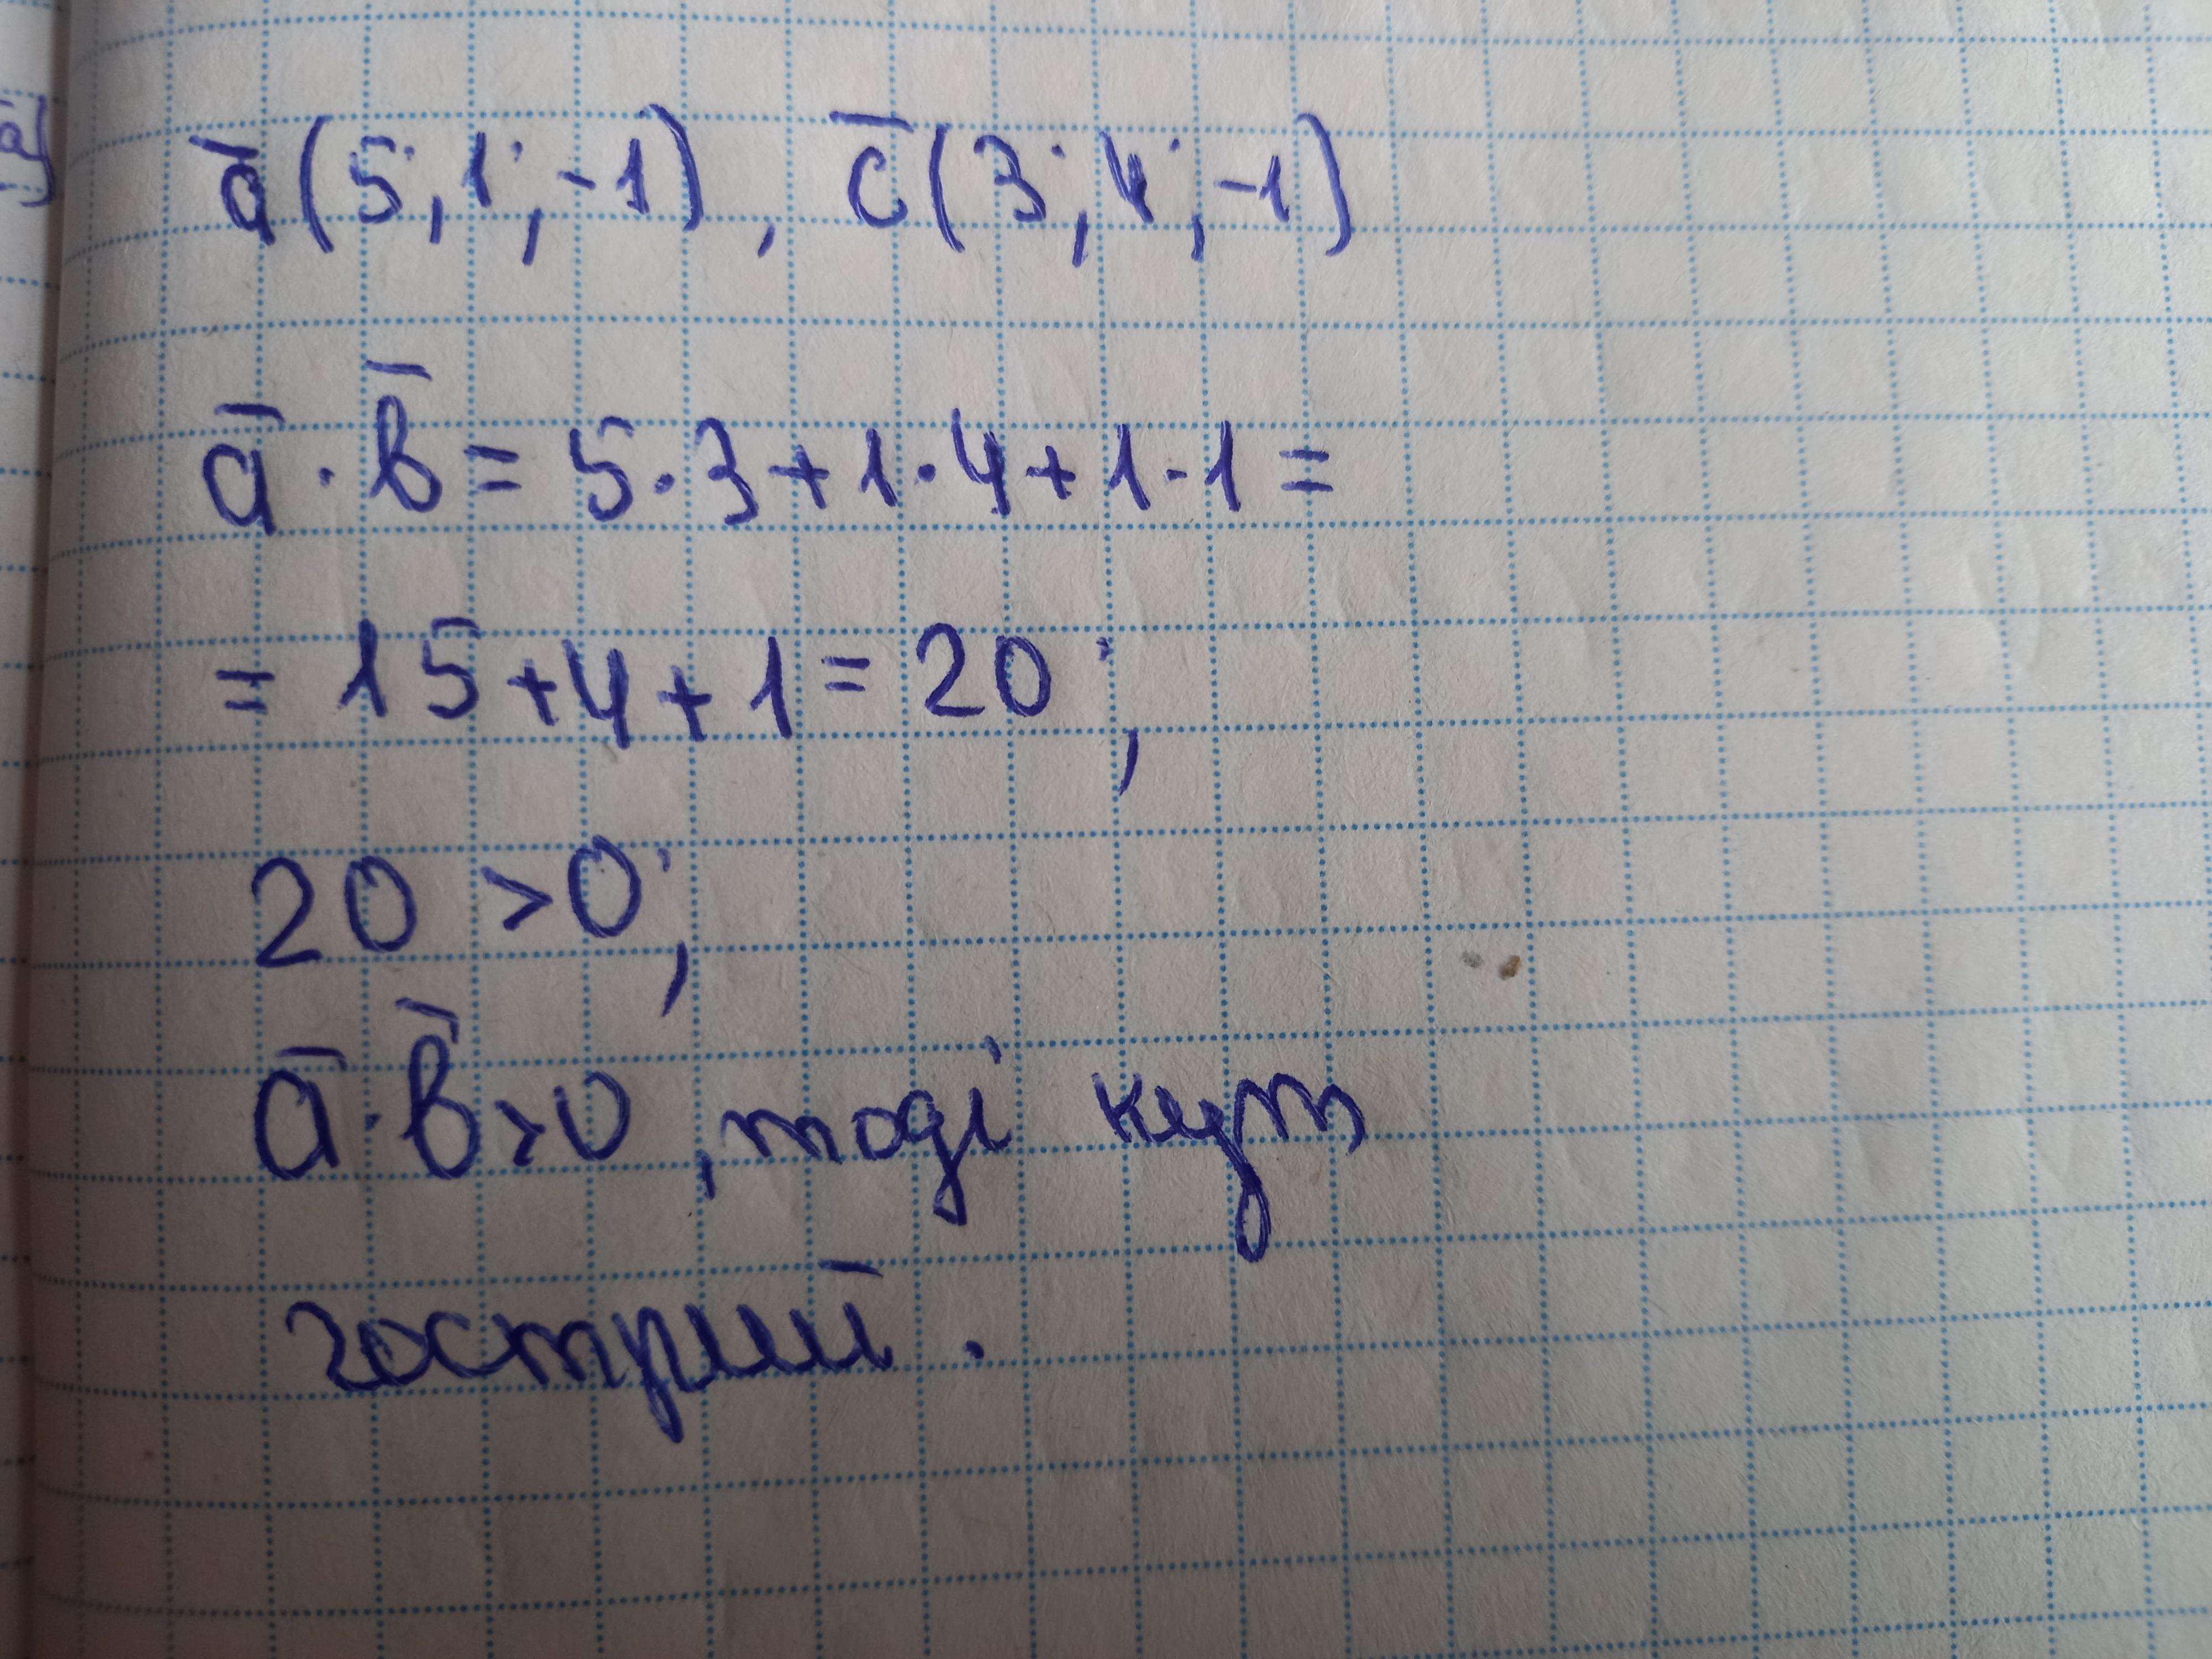 a̅(5;1;-1), c̅(3;4;-1)
a̅·b̅=5·3+1·4+1·1=
=15+4+1=20;
20>0;
a̅·b̅>0, тоді кут
гострий.